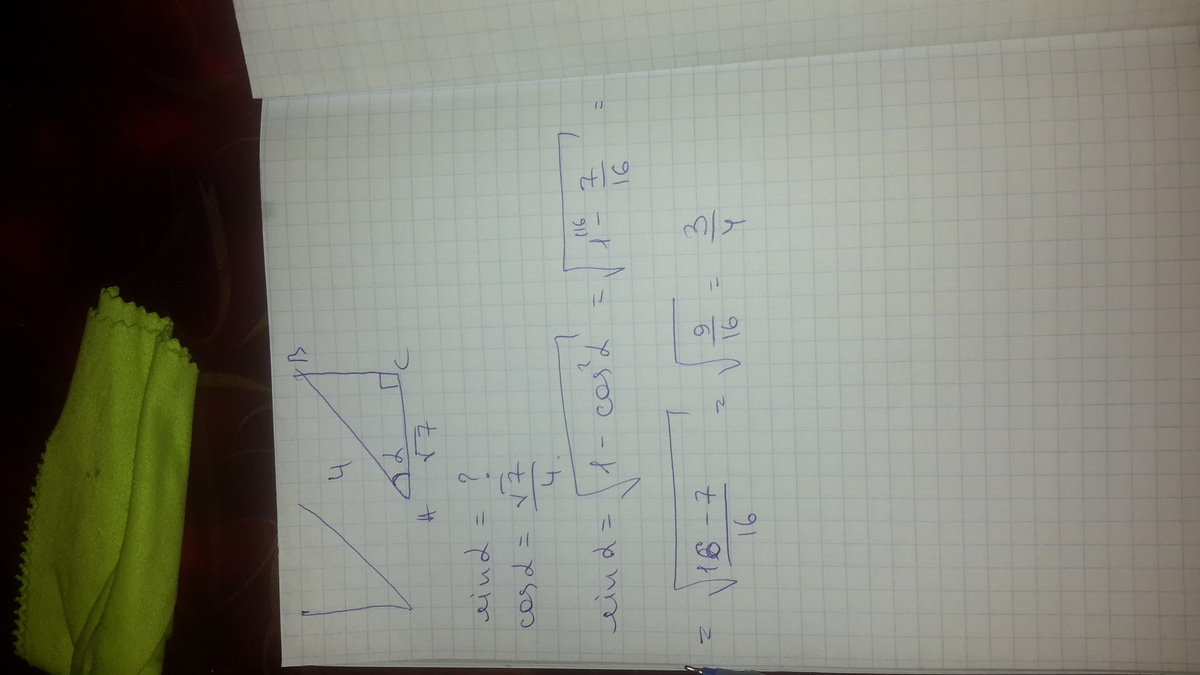 B
4
α
A √7 C
sin α = ?
cos α = √7/4.
sin α = √(1 - cos²α) = √(1^{\16} - 7/16) =
= √((16 - 7)/16) = √(9/16) = 3/4